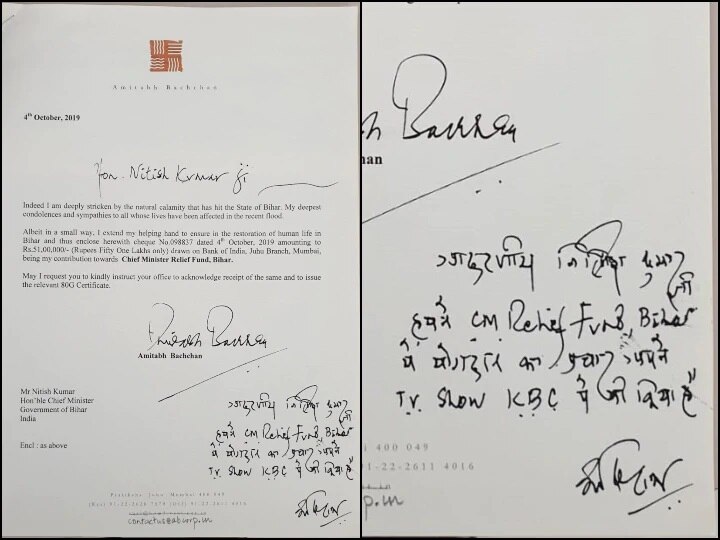 Amitabh Bachchan
4th October, 2019
Hon. Nitish Kumar ji
Indeed I am deeply stricken by the natural calamity that has hit the State of Bihar. My deepest
condolences and sympathies to all whose lives have been affected in the recent flood.
Albeit in a small way, I extend my helping hand to ensure in the restoration of human life in
Bihar and thus enclose herewith cheque No.098837 dated 4th October, 2019 amounting to
Rs.51,00,000/- (Rupees Fifty One Lakhs only) drawn on Bank of India, Juhu Branch, Mumbai,
being my contribution towards Chief Minister Relief Fund, Bihar.
May I request you to kindly instruct your office to acknowledge receipt of the same and to issue
the relevant 80G Certificate.
Amitabh Bachchan
Amitabh Bachchan
Mr Nitish Kumar
Hon'ble Chief Minister
Government of Bihar
India
Encl : as above
आदरणीय नितीश कुमार
जी
हमने CM Relief Fund, Bihar
में योगदान का प्रचार अपने
T.V. Show KBC में भी किया है
अमिताभ
Pratiksha Juhu Mumbai 400 049
contactus@abcorp.in
h Bachchan
han
आदरणीय नितीश कुमार
जी
हमने CM Relief Fund, Bihar
में योगदान का प्रचार अपने
T.V. Show KBC में भी किया है
i 400 049
91-22-2611 4016
अमिताभ
rp.in